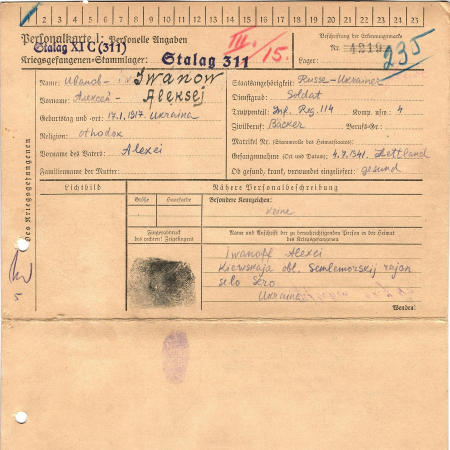 1 2 3 4 5 6 7 8 9 10 11 12 13 14 15 16 17 18 19 20 21 22 23
Personalkarte I: Personelle Angaben
Stalag XI C (311)
Kriegsgefangenen-Stammlager: Stalag 311
III/15.
Beschriftung der Erkennungsmarke
Nr. 4219
235
Lager:
Name: Iwanow
Vorname: Alexei - Aleksej
Geburtstag und -ort: 17.1.1917. Ukraina
Religion: othodox
Vorname des Vaters: Alexei
Familienname der Mutter:
Staatsangehörigkeit: Russe-Ukrainer
Dienstgrad: Soldat
Truppenteil: Inf. Reg. 114 Komp. usw.: 4
Zivilberuf: Bäcker Berufs-Gr.:
Matrikel Nr. (Stammrolle des Heimatstaates):
Gefangennahme (Ort und Datum): 4.7.1941. Lettland
Ob gesund, krank, verwundet eingeliefert: gesund
des Kriegsgefangenen
Lichtbild
Nähere Personalbeschreibung
Größe
Haarfarbe
Besondere Kennzeichen:
keine
Fingerabdruck
des rechten! Zeigefingers
Name und Anschrift der zu benachrichtigenden Person in der Heimat
des Kriegsgefangenen
Iwanoff Alexei
Kiewskaja obl. Semlemorskij rajon
selo Sero
Ukraina
Wenden!
5